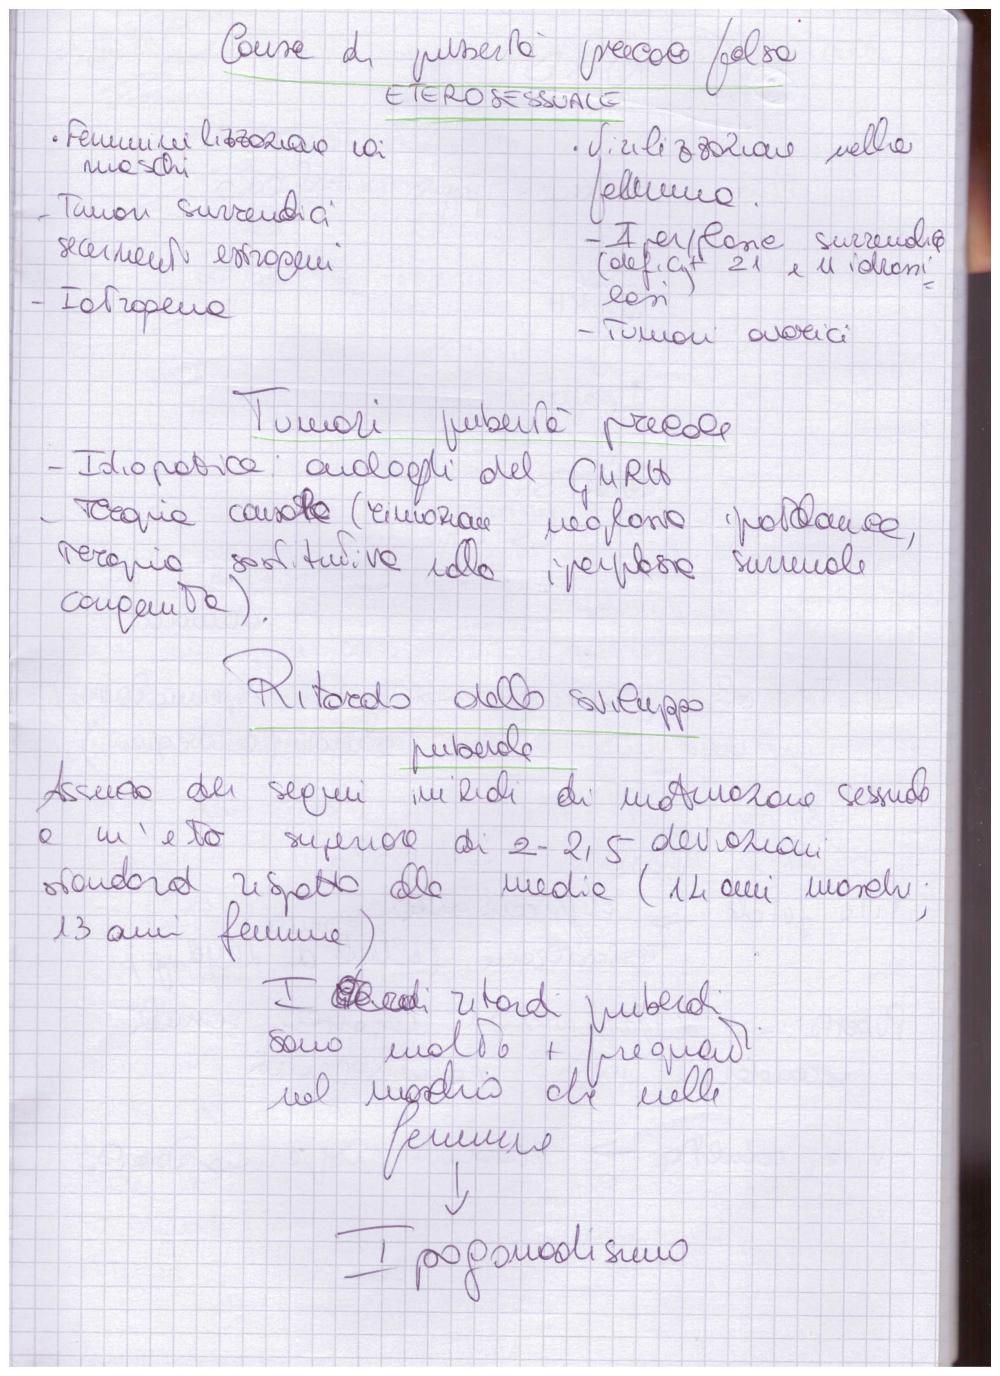 Cause di pubertà precoce falsa
ETEROSESSUALE
• Femminilizzazione nei
maschi
- Tumori surrenalici
secernenti estrogeni
- Iatrogena
• Virilizzazione nella
femmina.
- Iperplasie surrenalica
(deficit 21 e 11 idrossi
lasi)
- Tumori ovarici
Tumori pubertà precoce
- Idiopatica: analoghi del GnRH
- Terapia causale (rimozione neoplasia
terapia sostitutiva nella iperplasia surrenale
congenita).
Ritardo dello sviluppo
puberale
Assenza dei segni iniziali di maturazione sessuale
a un'età superiore di 2-2,5 deviazioni
standard rispetto alla media (14 anni maschi;
13 anni femmine)
I ritardi puberali
sono molto + frequenti
nel maschio che nelle
femmine
↓
Ipogonadismo